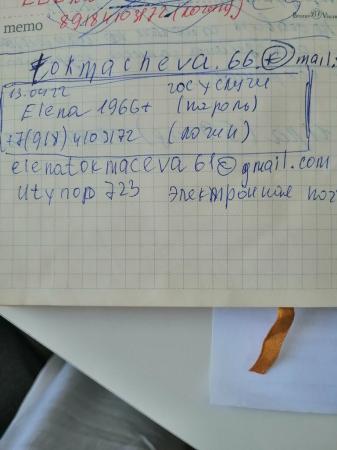 memo
89184103172 (логин)
tokmacheva.66.@mail:
13.04.22 госуслуги
Elena 1966+ (пароль)
+7(918)4103172 (логин)
elenatokmaceva61@gmail.com
723 электронная поч